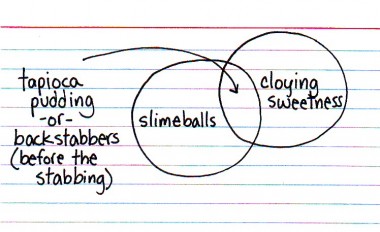 tapioca
pudding
-or-
backstabbers
(before the
stabbing)
slimeballs
cloying
sweetness